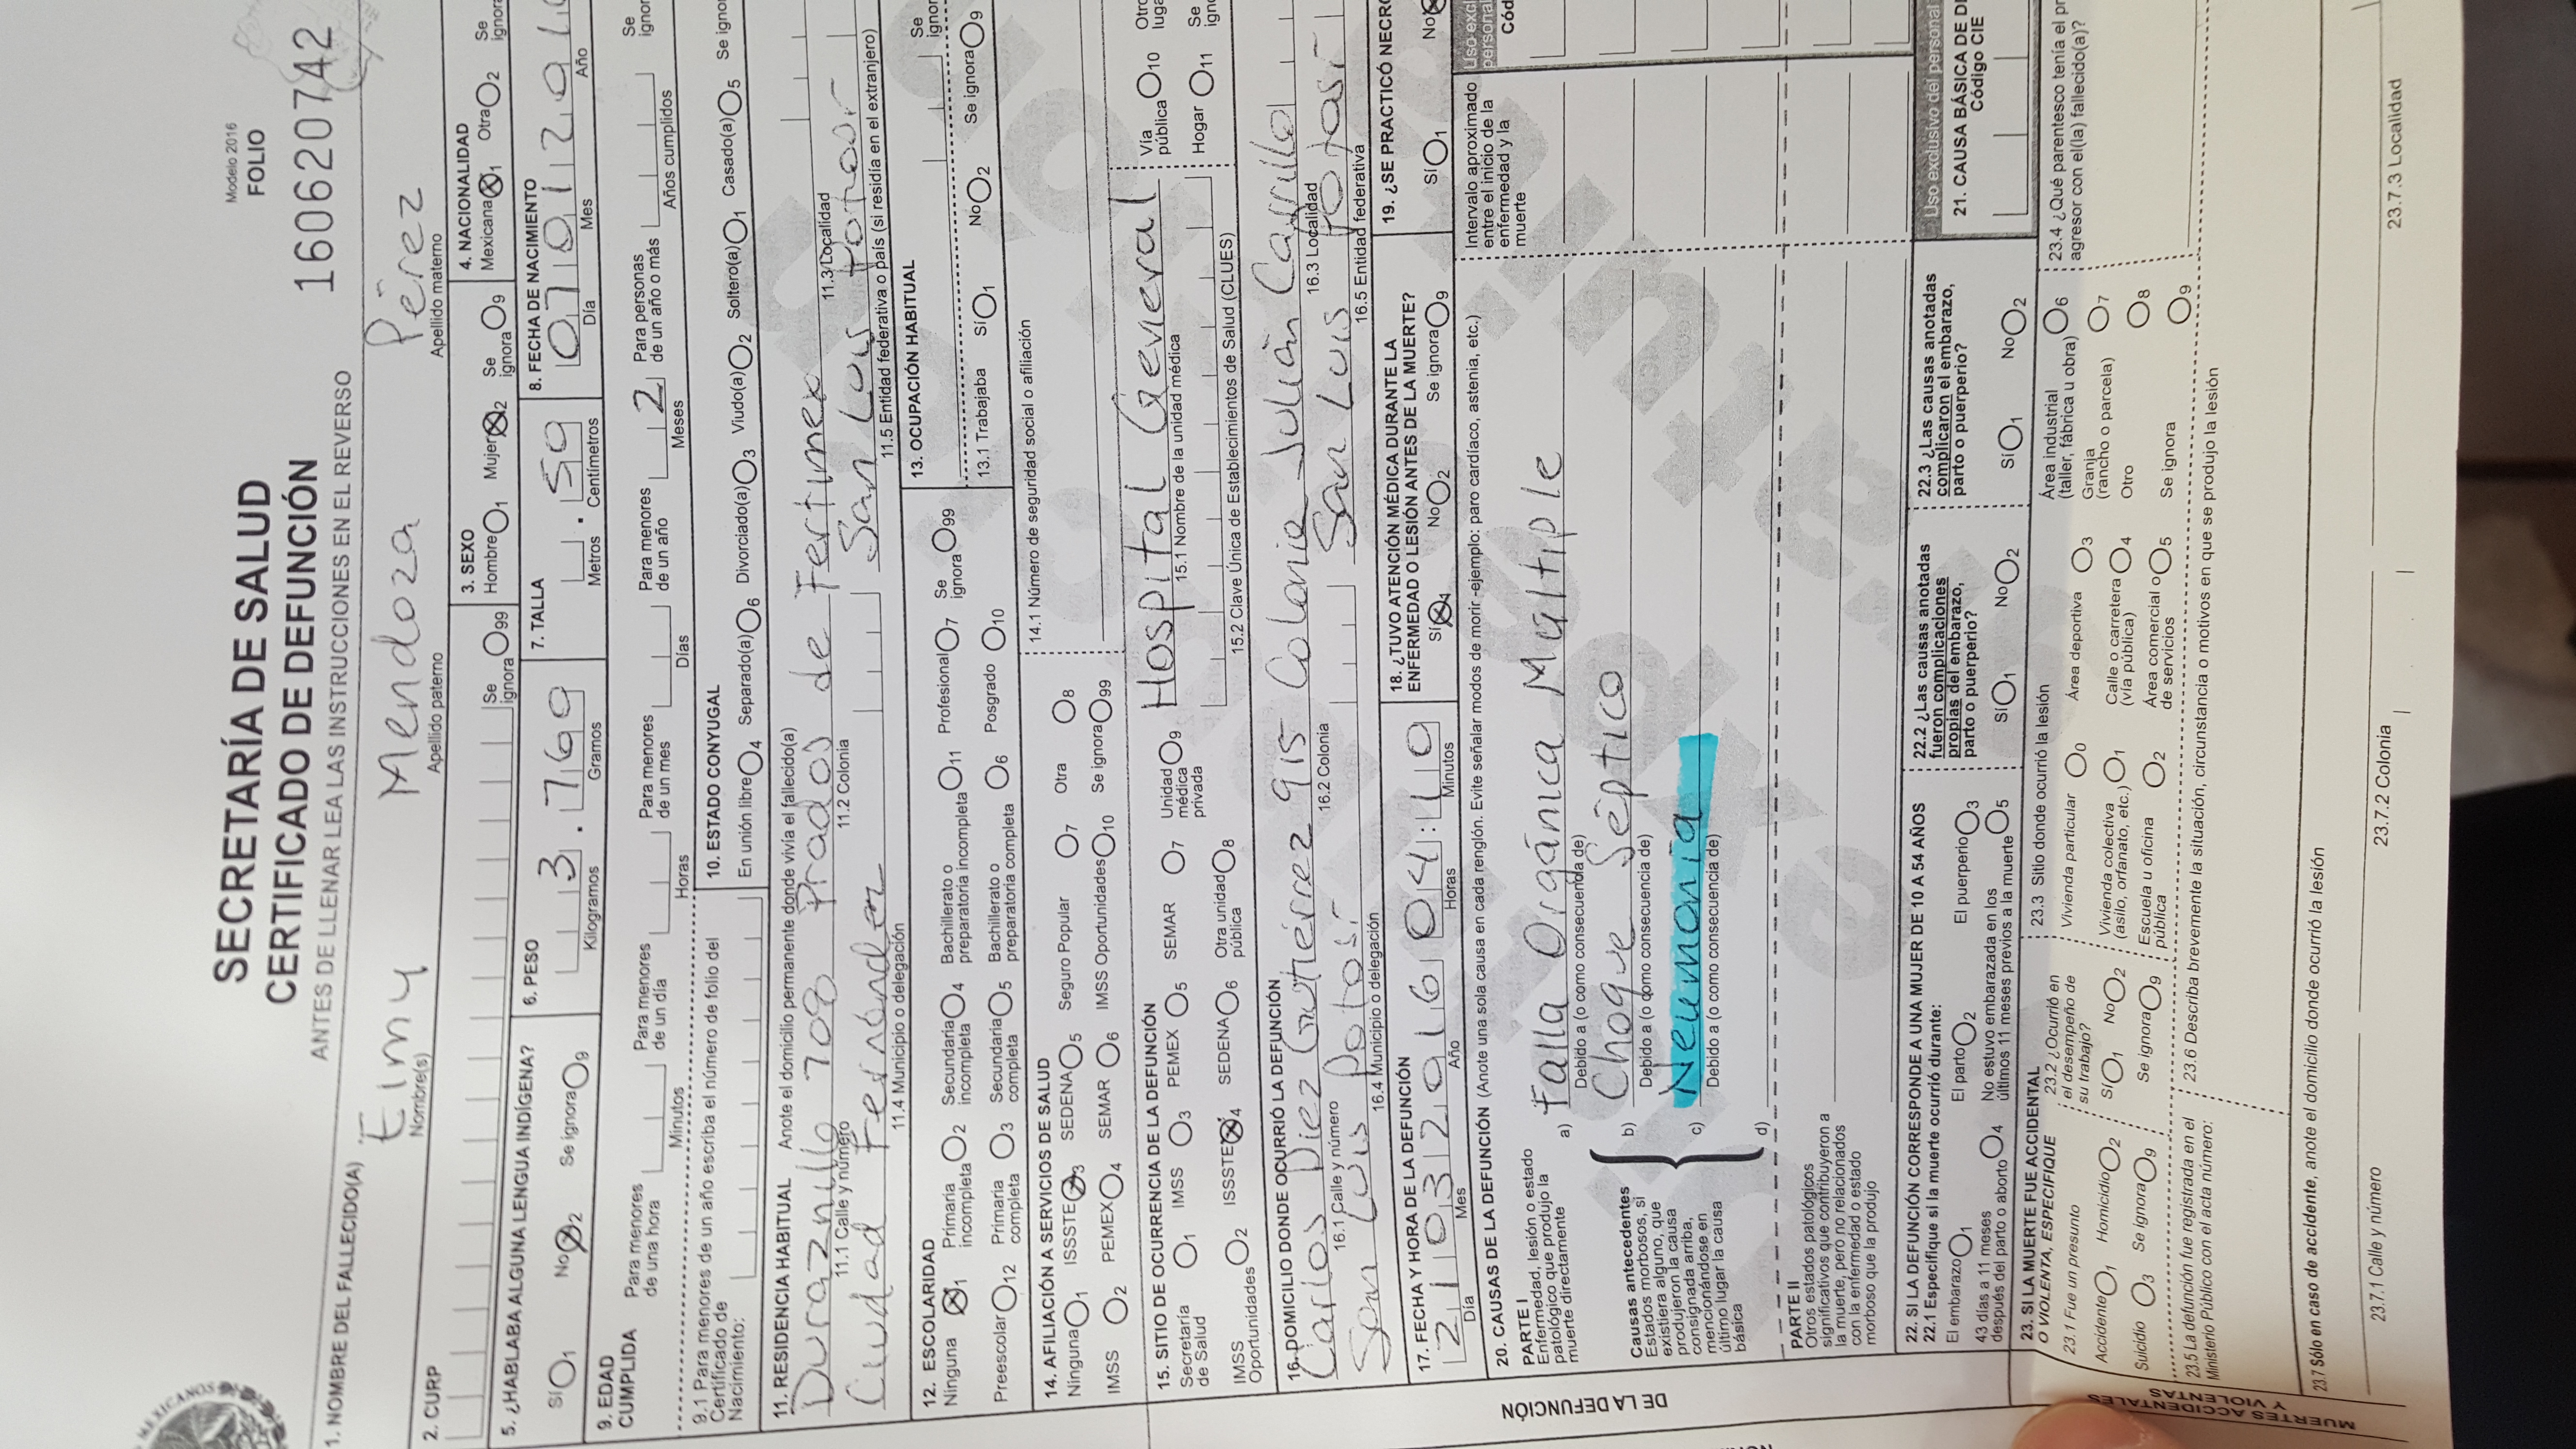 Modelo 2016
SECRETARÍA DE SALUD
FOLIO
CERTIFICADO DE DEFUNCIÓN
160620742
ANTES DE LLENAR LEA LAS INSTRUCCIONES EN EL REVERSO
MEXICANOS
1. NOMBRE DEL FALLECIDO(A) Eimy Mendoza Pérez
Nombre(s) Apellido paterno Apellido materno
2. CURP Se ignora 99
3. SEXO Hombre 1 Mujer 2 Se ignora 9
4. NACIONALIDAD Mexicana 1 Otra 2 Se
5. ¿HABLABA ALGUNA LENGUA INDÍGENA?
Sí 1 No 2 Se ignora 9
6. PESO 3 . 769
Kilogramos Gramos
7. TALLA . 59
Metros Centímetros
8. FECHA DE NACIMIENTO 07 01 201
Día Mes Año
9. EDAD CUMPLIDA
Para menores de una hora Minutos
Para menores de un día Horas
Para menores de un mes Días
Para menores de un año 2 Meses
Para personas de un año o más Años cumplidos
Se
9.1 Para menores de un año escriba el número de folio del Certificado de Nacimiento:
10. ESTADO CONYUGAL
En unión libre 4 Separado(a) 6 Divorciado(a) 3 Viudo(a) 2 Soltero(a) 1 Casado(a) 5 Se
11. RESIDENCIA HABITUAL Anote el domicilio permanente donde vivía el fallecido(a)
Duraznillo 708 Prados de Fertimex
11.1 Calle y número 11.2 Colonia 11.3 Localidad
Ciudad Fernández San Luis Potosí
11.4 Municipio o delegación 11.5 Entidad federativa o país (si residía en el extranjero)
12. ESCOLARIDAD
Ninguna 1 Primaria incompleta 2 Secundaria incompleta 4 Bachillerato o preparatoria incompleta 11 Profesional 7 Se ignora 99
Preescolar 12 Primaria completa 3 Secundaria completa 5 Bachillerato o preparatoria completa 6 Posgrado 10
13. OCUPACIÓN HABITUAL Se
13.1 Trabajaba Sí 1 No 2 Se ignora 9
14. AFILIACIÓN A SERVICIOS DE SALUD
Ninguna 1 ISSSTE 3 SEDENA 5 Seguro Popular 7 Otra 8
IMSS 2 PEMEX 4 SEMAR 6 IMSS Oportunidades 10 Se ignora 99
14.1 Número de seguridad social o afiliación
15. SITIO DE OCURRENCIA DE LA DEFUNCIÓN
Secretaría de Salud 1 IMSS 3 PEMEX 5 SEMAR 7 Unidad médica privada 9
IMSS Oportunidades 2 ISSSTE 4 SEDENA 6 Otra unidad pública 8
Hospital General
15.1 Nombre de la unidad médica
15.2 Clave Única de Establecimientos de Salud (CLUES)
Vía pública 10
Hogar 11
16. DOMICILIO DONDE OCURRIÓ LA DEFUNCIÓN
Carlos Diez Gutiérrez 915 Colonia Julián Carrillo
16.1 Calle y número 16.2 Colonia 16.3 Localidad
San Luis Potosí San Luis Potosí
16.4 Municipio o delegación 16.5 Entidad federativa
17. FECHA Y HORA DE LA DEFUNCIÓN
21 03 2016 04:10
Día Mes Año Horas Minutos
18. ¿TUVO ATENCIÓN MÉDICA DURANTE LA ENFERMEDAD O LESIÓN ANTES DE LA MUERTE?
Sí 1 No 2 Se ignora 9
19. ¿SE PRACTICÓ
Sí 1 No
20. CAUSAS DE LA DEFUNCIÓN (Anote una sola causa en cada renglón. Evite señalar modos de morir -ejemplo: paro cardíaco, astenia, etc.)
Intervalo aproximado entre el inicio de la enfermedad y la muerte
DE LA DEFUNCIÓN
PARTE I
Enfermedad, lesión o estado patológico que produjo la muerte directamente
a) Falla Orgánica Múltiple
Debido a (o como consecuencia de)
Causas antecedentes
Estados morbosos, si existiera alguno, que produjeron la causa consignada arriba, mencionándose en último lugar la causa básica
b) Choque Séptico
Debido a (o como consecuencia de)
c) Neumonía
Debido a (o como consecuencia de)
d)
PARTE II
Otros estados patológicos significativos que contribuyeron a la muerte, pero no relacionados con la enfermedad o estado morboso que la produjo
22. SI LA DEFUNCIÓN CORRESPONDE A UNA MUJER DE 10 A 54 AÑOS
22.1 Especifique si la muerte ocurrió durante:
El embarazo 1 El parto 2 El puerperio 3
43 días a 11 meses después del parto o aborto 4 No estuvo embarazada en los últimos 11 meses previos a la muerte 5
22.2 ¿Las causas anotadas fueron complicaciones propias del embarazo, parto o puerperio?
Sí 1 No 2
22.3 ¿Las causas anotadas complicaron el embarazo, parto o puerperio?
Sí 1 No 2
Uso exclusivo del personal
21. CAUSA BÁSICA DE
Código CIE
MUERTES ACCIDENTALES Y VIOLENTAS
23. SI LA MUERTE FUE ACCIDENTAL O VIOLENTA, ESPECIFIQUE
23.1 Fue un presunto
Accidente 1 Homicidio 2
Suicidio 3 Se ignora 9
23.2 ¿Ocurrió en el desempeño de su trabajo?
Sí 1 No 2
Se ignora 9
23.3 Sitio donde ocurrió la lesión
Vivienda particular 0 Área deportiva 3 Área industrial (taller, fábrica u obra) 6
Vivienda colectiva (asilo, orfanato, etc.) 1 Calle o carretera (vía pública) 4 Granja (rancho o parcela) 7
Escuela u oficina pública 2 Área comercial o de servicios 5 Otro 8
Se ignora 9
23.4 ¿Qué parentesco tenía el
agresor con el(la) fallecido(a)?
23.5 La defunción fue registrada en el Ministerio Público con el acta número:
23.6 Describa brevemente la situación, circunstancia o motivos en que se produjo la lesión
23.7 Sólo en caso de accidente, anote el domicilio donde ocurrió la lesión
23.7.1 Calle y número 23.7.2 Colonia 23.7.3 Localidad